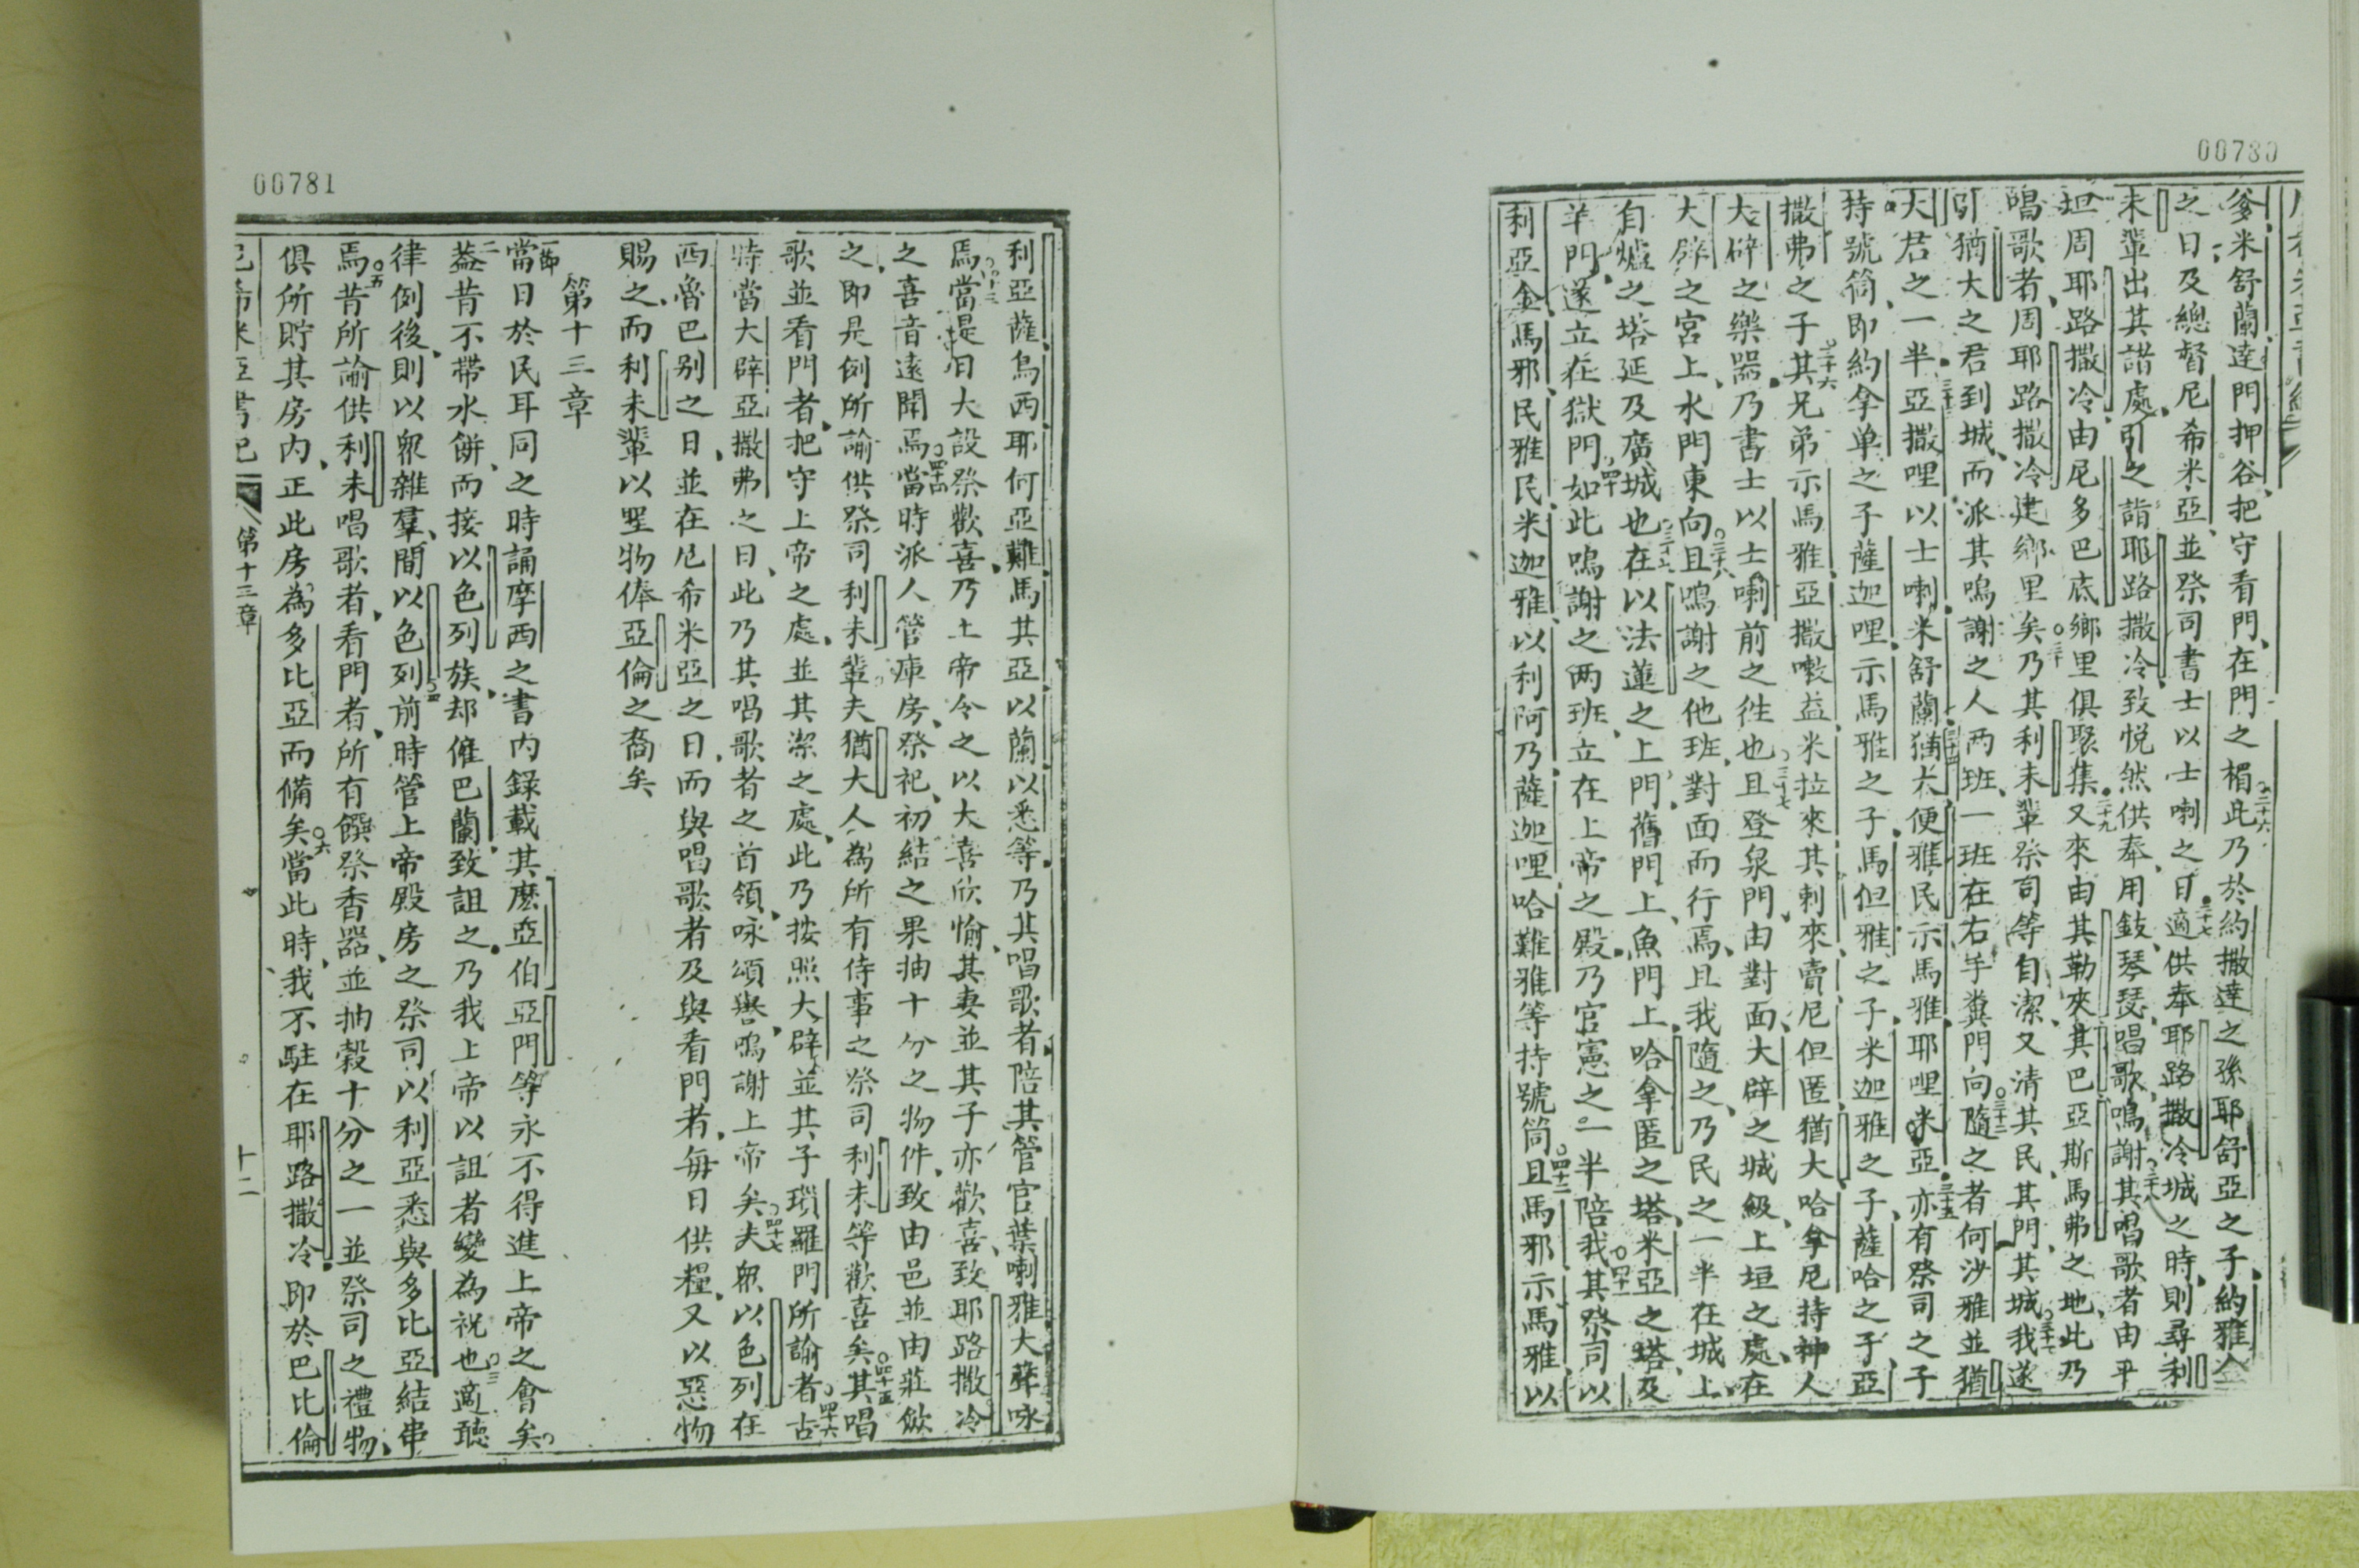 00780
爹米舒蘭達門押谷把守看門在門之楣此乃於約撒達之孫耶舒亞之子約雅金
之日及總督尼希米亞並祭司書士以士喇之日適供奉耶路撒冷城之時則尋利
未輩出其諸處引之詣耶路撒冷致悅然供奉用鈸琴瑟唱歌鳴謝其唱歌者由平
坦周耶路撒冷由尼多巴底鄉里俱聚集又來由其勒夾其巴亞斯馬弗之地此乃
唱歌者周耶路撒冷建鄉里矣乃其利未輩祭司等自潔又清其民其門其城我遂
引猶大之君到城而派其鳴謝之人两班一班在右手糞門向隨之者何沙雅並猶
大君之一半亞撒哩以士喇米舒蘭猶大便雅民示馬雅耶哩米亞亦有祭司之子
持號筒即約拿单之子薩迦哩示馬雅之子馬但雅之子米迦雅之子薩哈之子亞
撒弗之子其兄弟示馬雅亞撒㘔益米拉來其剌來賣尼但匿猶大哈拿尼持神人
大辟之樂器乃書士以士喇前之徃也且登泉門由對面大辟之城級上垣之處在
大辟之宮上水門東向且鳴謝之他班對面而行焉且我隨之乃民之一半在城上
自爐之塔延及廣城也在以法蓮之上門舊門上魚門上哈拿匿之塔米亞之塔及
羊門遂立在獄門如此鳴謝之两班立在上帝之殿乃官憲之一半陪我其祭司以
利亞金馬邪民雅民米迦雅以利阿乃薩迦哩哈難雅等持號筒且馬邪示馬雅以
00781
利亞薩烏西耶何亞難馬其亞以蘭以悉等乃其唱歌者陪其管官葉喇雅大聲咏
焉當是日大設祭歡喜乃上帝令之以大喜欣愉其妻並其子亦歡喜致耶路撒冷
之喜音遠聞焉當時派人管庫房祭祀初結之果抽十分之物件致由邑並由莊斂
之即是例所諭供祭司利未輩夫猶大人為所有侍事之祭司利未等歡喜矣其唱
歌並看門者把守上帝之處並其潔之處此乃按照大辟並其子瑣羅門所諭者古
時當大辟亞撒弗之日此乃其唱歌者之首領咏頌譽鳴謝上帝矣夫眾以色列在
西魯巴别之日並在尼希米亞之日而與唱歌者及與看門者每日供糧又以惡物
賜之而利未輩以聖物俸亞倫之裔矣
第十三章
一節當日於民耳同之時誦摩西之書内錄載其麽亞伯亞門等永不得進上帝之會矣
二葢昔不帶水餅而接以色列族却僱巴蘭致詛之乃我上帝以詛者變為祝也適聽
律例後則以眾雜羣間以色列前時管上帝殿房之祭司以利亞悉與多比亞結串
焉昔所諭供利未唱歌者看門者所有饌祭香器並抽穀十分之一並祭司之禮物
俱所貯其房内正此房為多比亞而備矣當此時我不駐在耶路撒冷即於巴比倫
尼希米亞書記
第十三章
十二